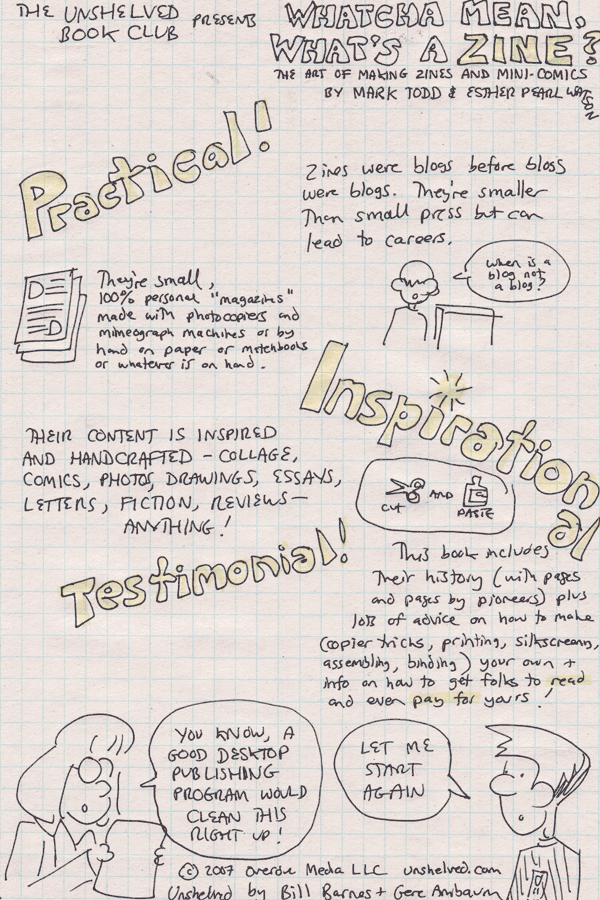 THE UNSHELVED PRESENTS
BOOK CLUB
WHATCHA MEAN,
WHAT'S A ZINE?
THE ART OF MAKING ZINES AND MINI-COMICS
BY MARK TODD & ESTHER PEARL WATSON
Practical!
Zines were blogs before blogs
were blogs. They're smaller
Then small press but can
lead to careers.
When is a
blog not
a blog?
They're small,
100% personal "magazines"
made with photocopiers and
mimeograph machines or by
hand on paper or matchbooks
or whatever is on hand.
Inspirational
THEIR CONTENT IS INSPIRED
AND HANDCRAFTED - COLLAGE,
COMICS, PHOTOS, DRAWINGS, ESSAYS,
LETTERS, FICTION, REVIEWS—
ANYTHING!
CUT AND PASTE
Testimonial!
This book includes
Their history (with pages
and pages by pioneers) plus
lots of advice on how to make
(copier tricks, printing, silkscreening,
assembling, binding) your own +
info on how to get folks to read
and even pay for yours!
YOU KNOW, A
GOOD DESKTOP
PUBLISHING
PROGRAM WOULD
CLEAN THIS
RIGHT UP!
LET ME
START
AGAIN
© 2007 Overdue Media LLC unshelved.com
Unshelved by Bill Barnes + Gene Ambaum